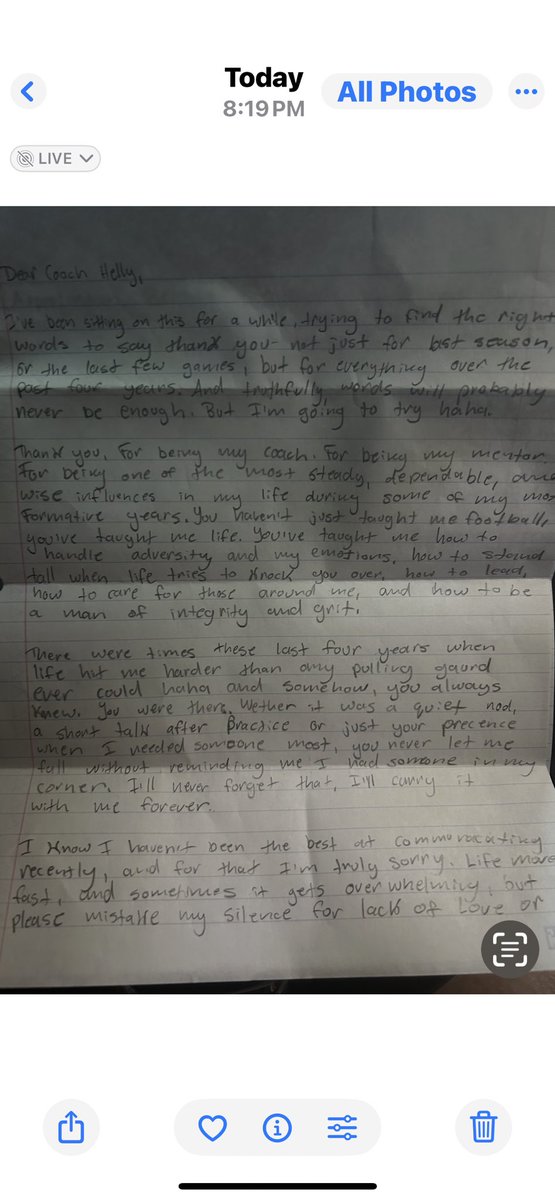 Today
8:19 PM
All Photos
LIVE
Dear Coach Helly,
I've been sitting on this for a while, trying to find the right
words to say thank you- not just for last season,
or the last few games, but for everything over the
past four years. And truthfully, words will probably
never be enough. But I'm going to try haha.
Thank you, For being my coach. For being my mentor.
For being one of the most steady, dependable, and
wise influences in my life during some of my mos
formative years. You haven't just taught me football,
you've taught me life. You've taught me how to
handle adversity, and my emotions, how to stand
tall when life tries to knock you over, how to lead,
how to care for those around me, and how to be
a man of integrity and grit.
There were times these last four years when
life hit me harder than any pulling gaurd
ever could haha and somehow, you always
knew. You were there. Wether it was a quiet nod,
a short talk after Practice or just your precence
when I needed someone most, you never let me
fall without reminding me I had somone in my
corner. I'll never forget that, I'll carry it
with me forever.
I know I haven't been the best at
recently, and for that I'm truly sorry. Life move
fast, and sometimes it gets overwhelming, but
please mistake my silence for lack of love or